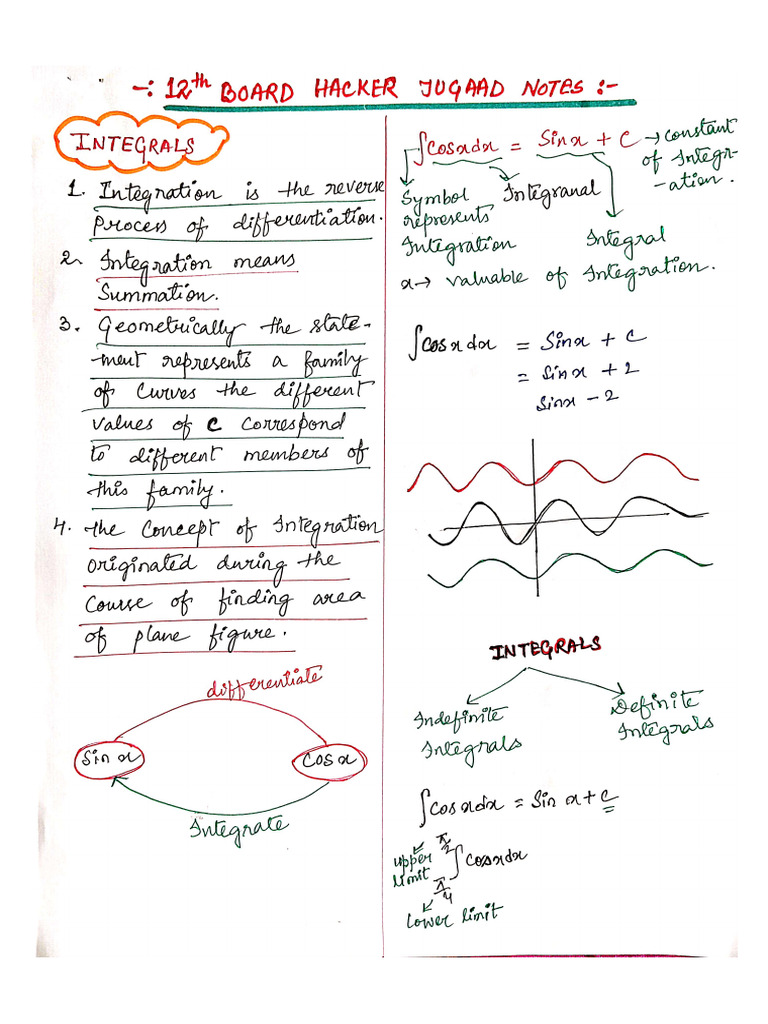 -: 12th BOARD HACKER JUGAAD NOTES :-
INTEGRALS
1. Integration is the reverse
Process of differentiation.
2. Integration means
Summation.
3. Geometrically the state-
ment represents a family
of curves the different
values of C correspond
to different members of
this family.
4. the Concept of Integration
originated during the
Course of finding area
of plane figure.
differentiate
Sin x
Cos x
Integrate
∫cosxdx = Sinx + C → constant
of Integr-
-ation.
Symbol
represents
Integration
Integranal
Integral
x→ valuable of Integration.
∫cosxdx = Sinx + C
= Sinx + 2
Sinx - 2
INTEGRALS
Indefinite
Integrals
Definite
Integrals
∫cosxdx = Sin x + C
upper
limit
π/2
∫cosxdx
π/4
lower limit